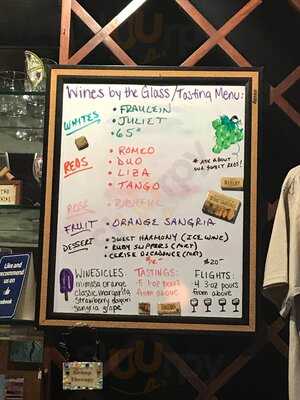 Wines by the Glass/Tasting Menu:
WHITES
• FRAULEIN
• JULIET
• 65°
REDS
• ROMEO
• DUO
• LIZA
• TANGO
* ASK ABOUT
our sweet reds!
ROSE
FRUIT
• ORANGE SANGRIA
DESSERT
• SWEET HARMONY (ICE WINE)
• RUBY SLIPPERS (PORT)
• CERISE DECADENCE (PORT)
WINESICLES
mimosa orange
classic margarita
strawberry daiquiri
sangria grape
TASTINGS:
5 1 oz pours
from above
$20
FLIGHTS:
4 3-oz pours
from above
Like and
recommend us
on
facebook
Group
Therapy